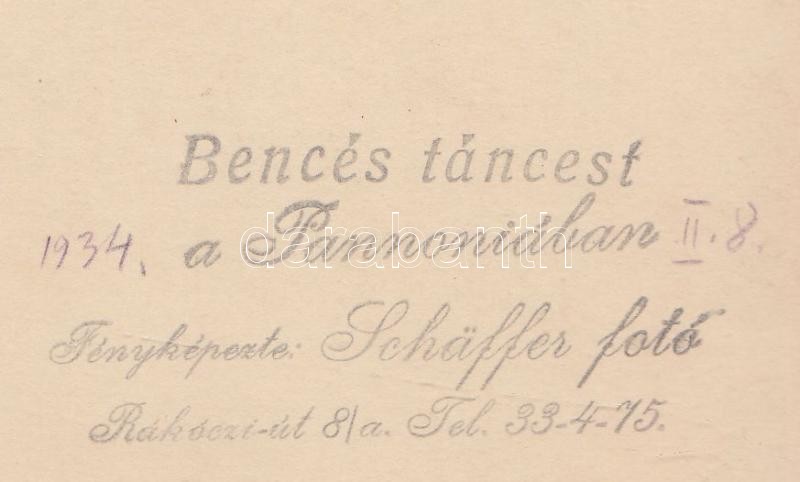 Bencés táncest
1934. a Pannoniában II. 8.
darabanth
Fényképezte: Schäffer fotó
Rákóczi-út 8/a. Tel. 33-4-75.